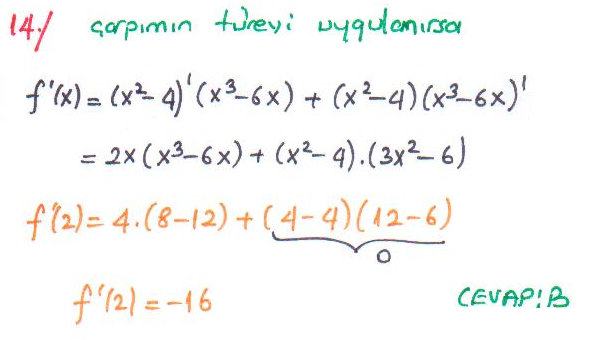 14./ çarpımın türevi uygulanırsa
f'(x) = (x²-4)'(x³-6x) + (x²-4)(x³-6x)'
= 2x(x³-6x) + (x²-4).(3x²-6)
f'(2) = 4.(8-12) + (4-4)(12-6)
0
f'(2) = -16 CEVAP:B